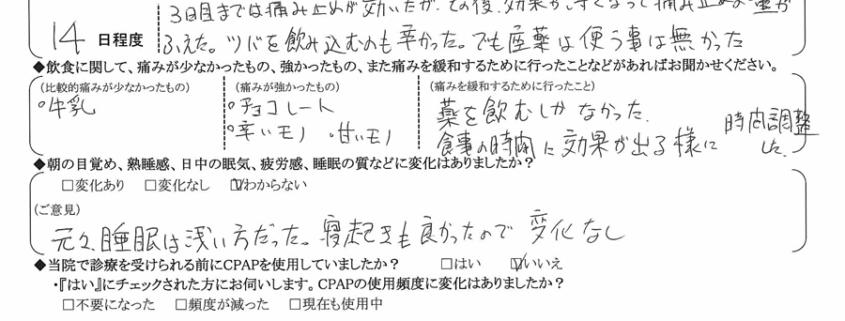 3日目までは痛み止めが効いたが、その後、効果が
14 日程度
ふえた。ツバを飲み込むのも辛かった。でも座薬は使う事は無かった
◆飲食に関して、痛みが少なかったもの、強かったもの、また痛みを緩和するために行ったことなどがあればお聞かせください。
(比較的痛みが少なかったもの) (痛みが強かったもの) (痛みを緩和するために行ったこと)
°牛乳 °チョコレート 薬を飲むしかなかった.
°辛いモノ ・甘いモノ 食事の時間に効果が出る様に 時間調整した.
◆朝の目覚め、熟睡感、日中の眠気、疲労感、睡眠の質などに変化はありましたか?
□変化あり □変化なし ☑わからない
(ご意見)
元々、睡眠は浅い方だった。寝起きも良かったので 変化なし
◆当院で診療を受けられる前にCPAPを使用していましたか? □はい ☑いいえ
・『はい』にチェックされた方にお伺いします。CPAPの使用頻度に変化はありましたか?
□不要になった □頻度が減った □現在も使用中